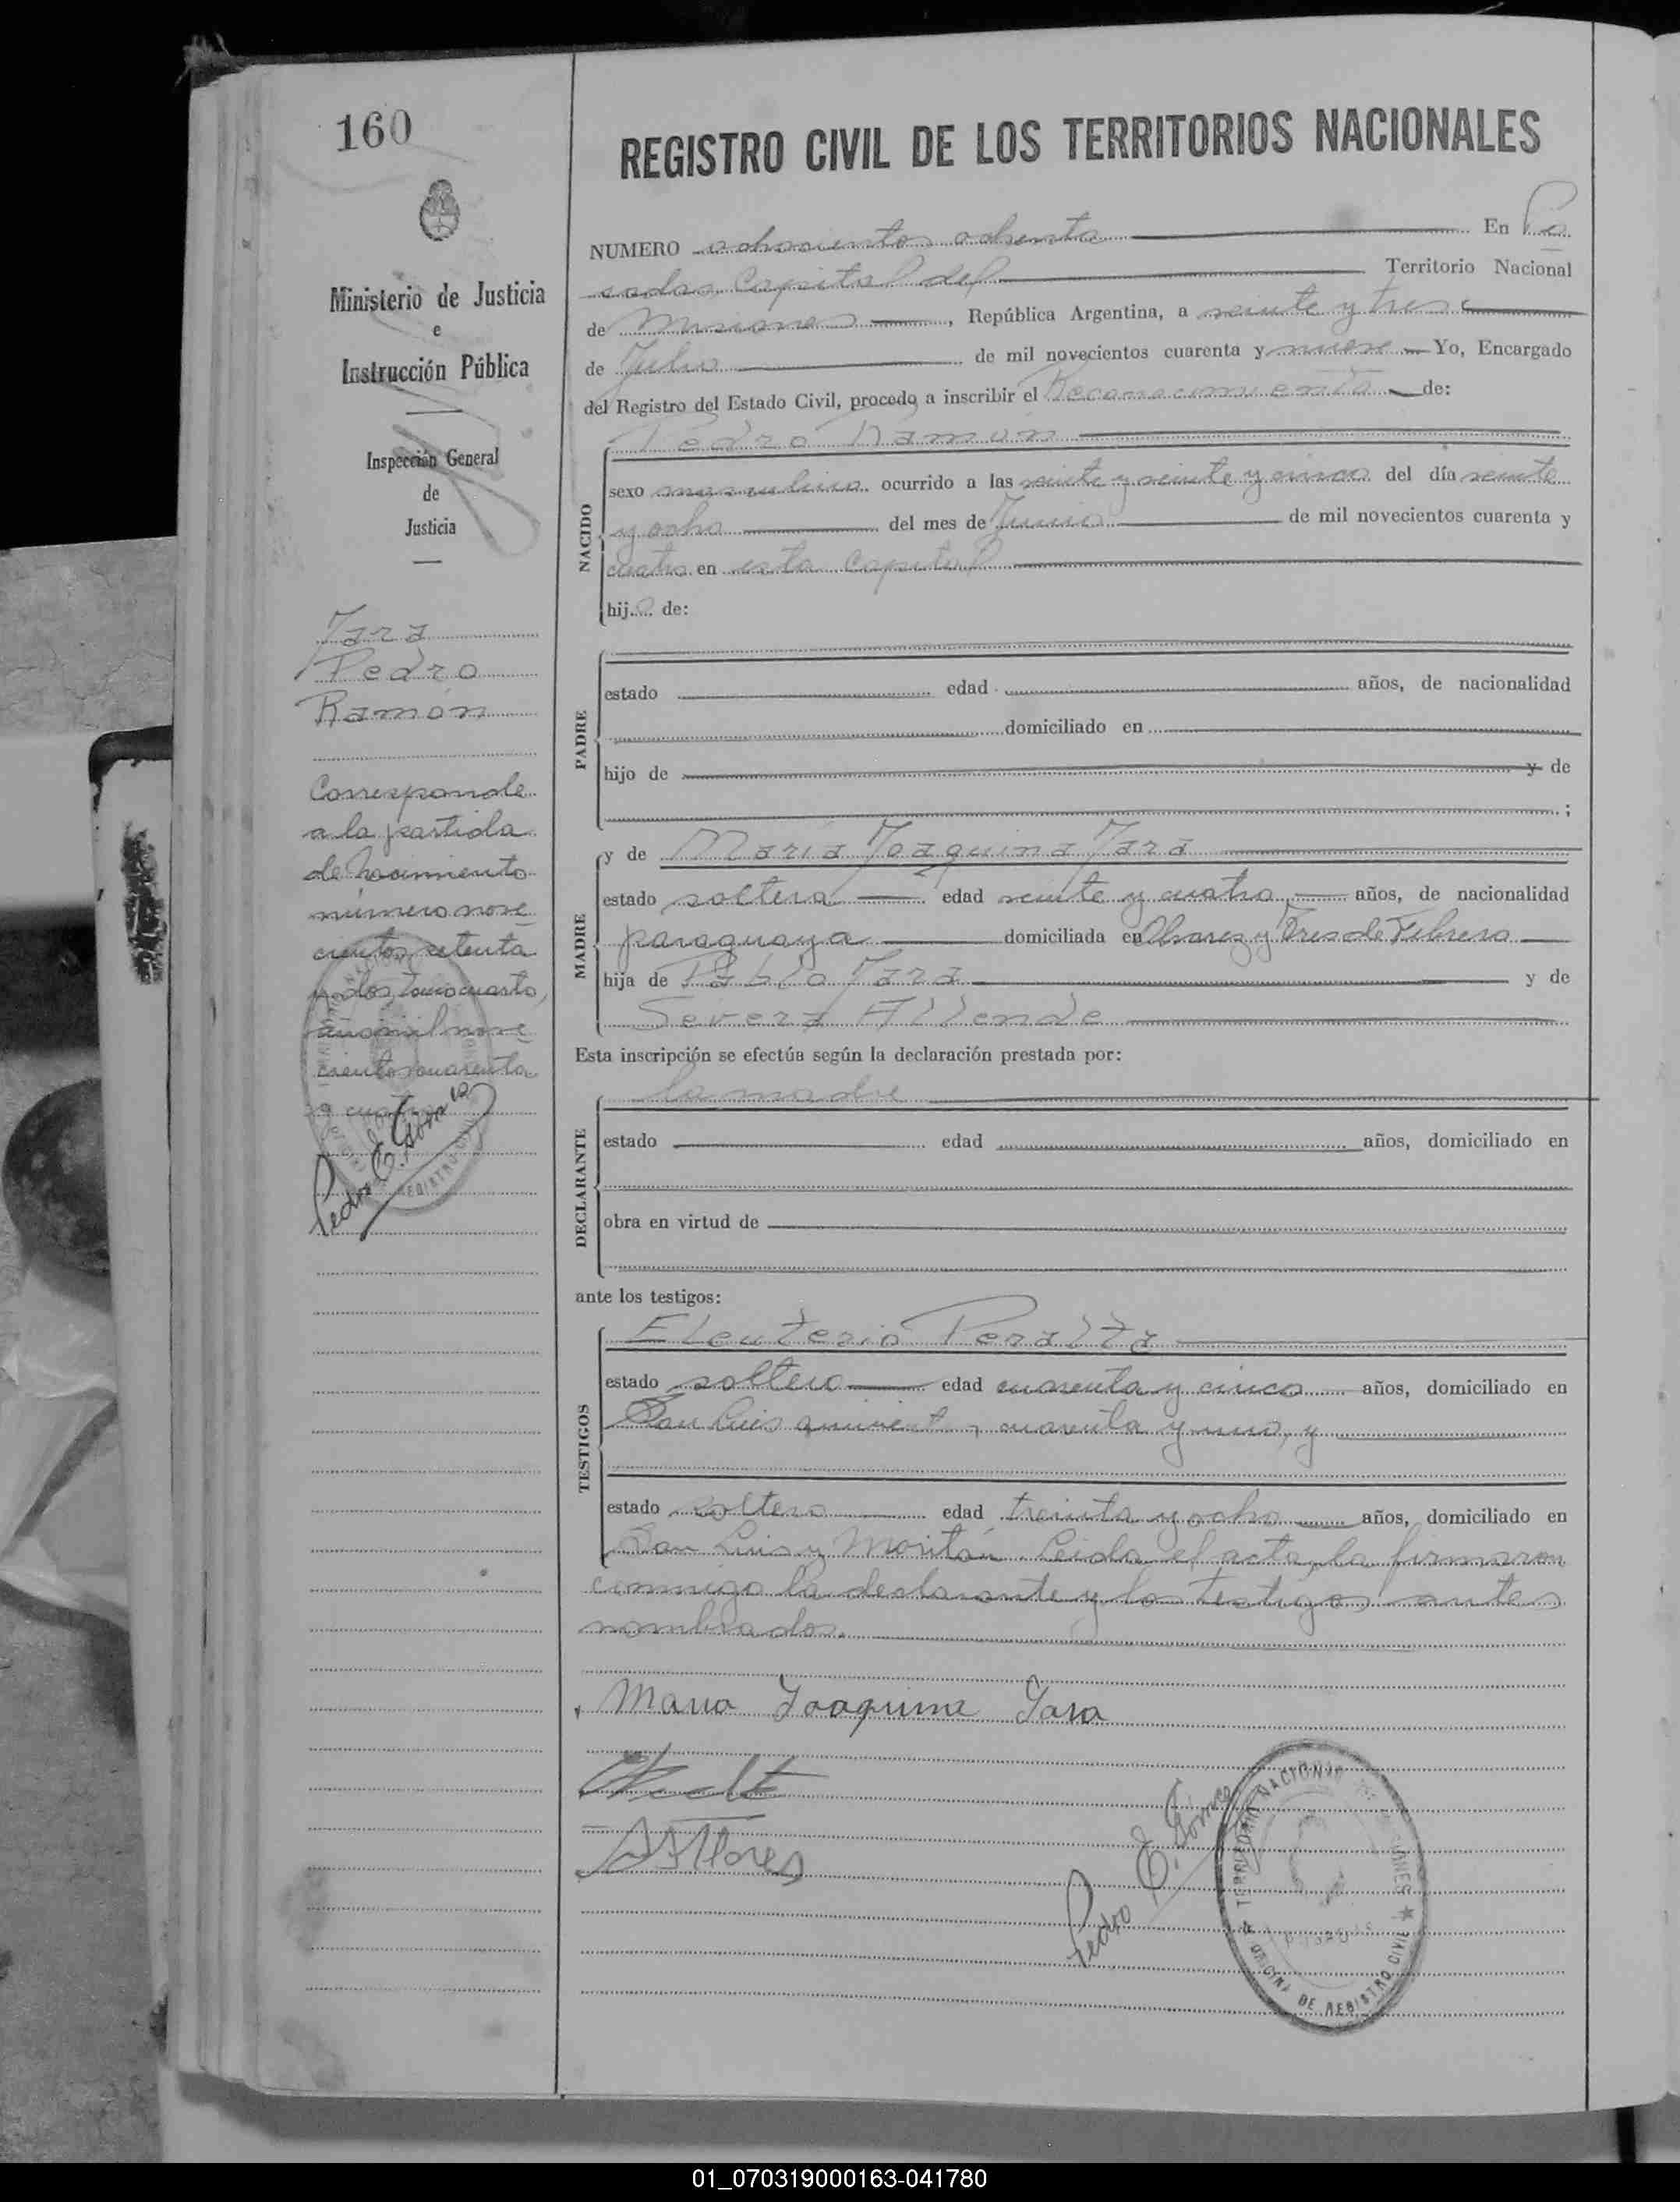 160
Ministerio de Justicia
e
Instrucción Pública
Inspección General
de
Justicia
Jara
Pedro
Ramón
Corresponde
a la partida
de Nacimiento
número nove
cientos setenta
y dos, tomo cuarto,
año mil nove
cientos cuarenta
y cuatro
Pedro E.
REGISTRO CIVIL DE LOS TERRITORIOS NACIONALES
NUMERO ochocientos ochenta En Po
sadas Capital del Territorio Nacional
de Misiones, República Argentina, a veinte y tres
de Julio de mil novecientos cuarenta y nueve Yo, Encargado
del Registro del Estado Civil, procedo a inscribir el Reconocimiento de:
Pedro Ramón
NACIDO
sexo masculino ocurrido a las veinte y veinte y cinco del día veinte
y ocho del mes de Junio de mil novecientos cuarenta y
cuatro en esta Capital
hijo de:
PADRE
estado edad años, de nacionalidad
domiciliado en
hijo de y de
;
MADRE
y de María Joaquina Jara
estado soltera edad veinte y cuatro años, de nacionalidad
paraguaya domiciliada en Alvarez y Tres de Febrero
hija de Pablo Jara y de
Severa Allende
Esta inscripción se efectúa según la declaración prestada por:
la madre
DECLARANTE
estado edad años, domiciliado en
obra en virtud de
ante los testigos:
TESTIGOS
Eleuterio Peralta
estado soltero edad cuarenta y cinco años, domiciliado en
San Luis quinientos cuarenta y uno, y
estado soltero edad treinta y ocho años, domiciliado en
San Luis y Moritán. Leida el acta, la firmaron
conmigo la declarante y los testigos antes
nombrados.
Maria Joaquina Jara
Flores
Pedro E. Gómez
TERRITORIO NACIONAL DE MISIONES
OFICINA DE REGISTRO CIVIL
01_070319000163-041780